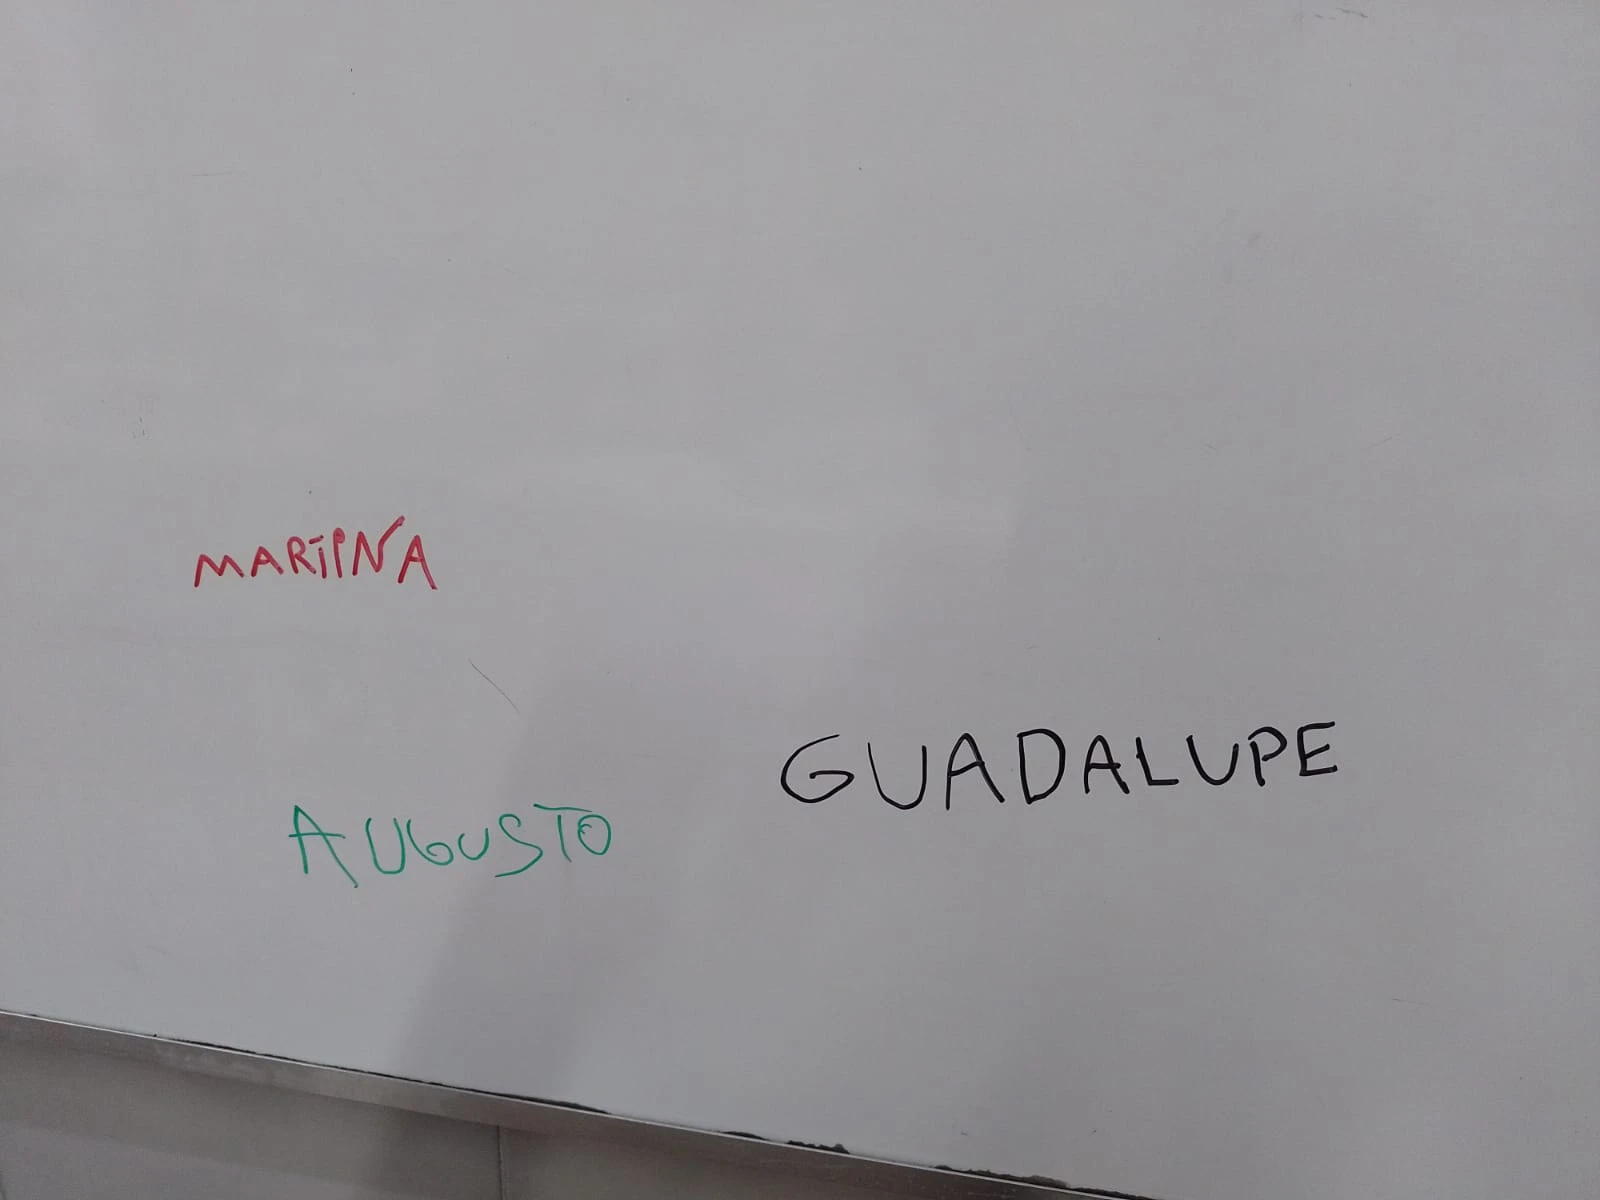 MARTINA
GUADALUPE
AUGUSTO